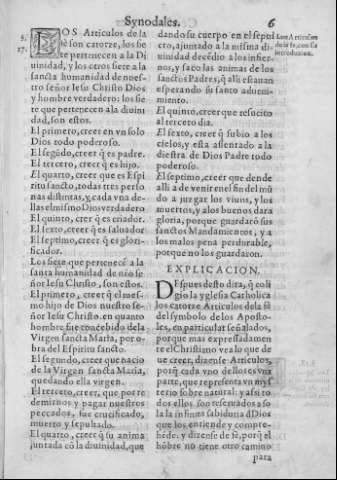 Synodales. 6
LOS Articulos de la
fè son catorze, los sie
te pertenecen a la Di
uinidad, y los otros siete a la
sancta humanidad de nues-
tro señor Iesu Christo Dios
y hombre verdadero: los sie
te que pertenecen ala diuini
dad, son estos.
El primero, creer en vn solo
Dios todo poderoso.
El segũdo, creer q̃ es padre.
El tercero, creer q̃ es hijo.
El quarto, creer que es Espi
ritu sancto, todas tres perso
nas distintas, y cada vna de-
llas el mismo Dios verdadero
El quinto, creer q̃ es criador.
El sexto, creer q̃ es saluador
El septimo, creer q̃ es glori-
ficador.
Los siete que pertenecẽ a la
santa humanidad de nr̃o se
ñor Iesu Christo, son estos.
El primero, creer q̃ el mes-
mo hijo de Dios nuestro se-
ñor Iesu Christo. en quanto
hombre, fue concebido dela
Virgen sancta Maria, por o-
bra del Espiritu sancto.
El segundo, creer que nacio
de la Virgen sancta Maria,
quedando ella virgen.
El tercero, creer, que por re
demirnos y pagar nuestros
peccados, fue crucificado,
muerto y sepultado.
El quarto, creer q̃ su anima
juntada cõ la diuinidad, que
dando su cuerpo en el sepul
cro, ajuntado a la misma di-
uinidad decẽdio a los infier-
nos, y saco las animas de los
sanctos Padres, q̃ alli estauan
esperando su santo adueni-
miento.
El quinto, creer que resucito
al tercero dia.
El sexto, creer q̃ subio a los
cielos, y esta assentado a la
diestra de Dios Padre todo
poderoso.
El septimo, creer que dende
alli a de venir enel fin del mũ
do a juzgar los viuos, y los
muertos, y alos buenos dara
gloria, porque guardarõ sus
sanctos Mandamientos, y a
los malos pena perdurable,
porque no los guardaron.
EXPLICACION.
DEspues desto dira, q̃ coli
gio la yglesia Catholica
los catorze Articulos dela fè
del symbolo de los Aposto-
les, en particular señalados,
porque mas expressadamen
te el Christiano vea lo que de
ue creer, dizense Articulos,
porq̃ cada vno dellos es vna
parte, que representa vn mys
terio sobre natural: y assi to
dos ellos son reseruados a so
la la infinita sabiduria d̃ Dios
que los entiende y comprehe-
hẽde: y dizense de fè, porq̃ el
hõbre no tiene otro camino
para